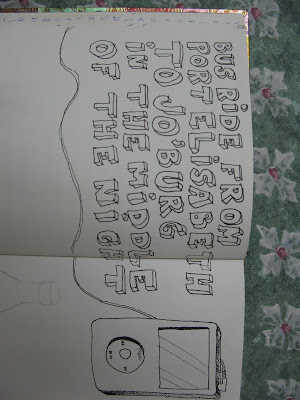 BUS RIDE FROM
PORT ELISABETH
TO JO'BURG
IN THE MIDDLE
OF THE NIGHT